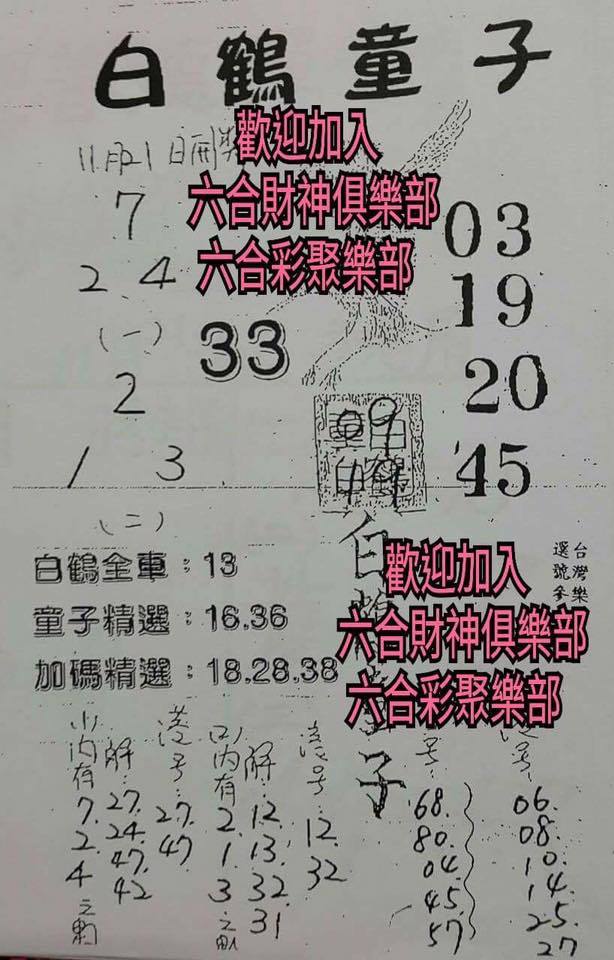 白鶴童子
11月21日開獎
歡迎加入
六合財神俱樂部
六合彩聚樂部
7
2 4
(一)
33
2
1 3
(二)
03
19
20
45
09
19
童白
子鶴
白鶴童子
白鶴全車:13
童子精選:16.36
加碼精選:18.28.38
歡迎加入
六合財神俱樂部
六合彩聚樂部
台灣樂
選號參
內有
7.
2.
4
解:
27.
24.
47.
42
港号:
27.
47
內有
2.
1.
3
解:
12.
13.
32.
31
港号:
12.
32
号:
68.
80.
04.
45.
57
号:
06.
08.
10.
14.
25.
27